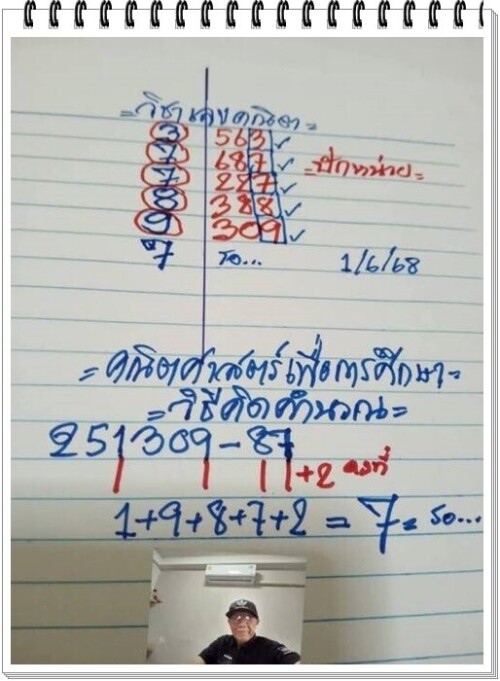 = วิชาเลขคณิต =
3 563 ✓
7 687 ✓ = ปักหน่วย =
7 227 ✓
8 388 ✓
9 309 ✓
7 รอ... 1/6/68
= คณิตศาสตร์เพื่อการศึกษา =
= วิธีคิดคำนวณ =
251309-87
+2 คงที่
1+9+8+7+2 = 7 = รอ...